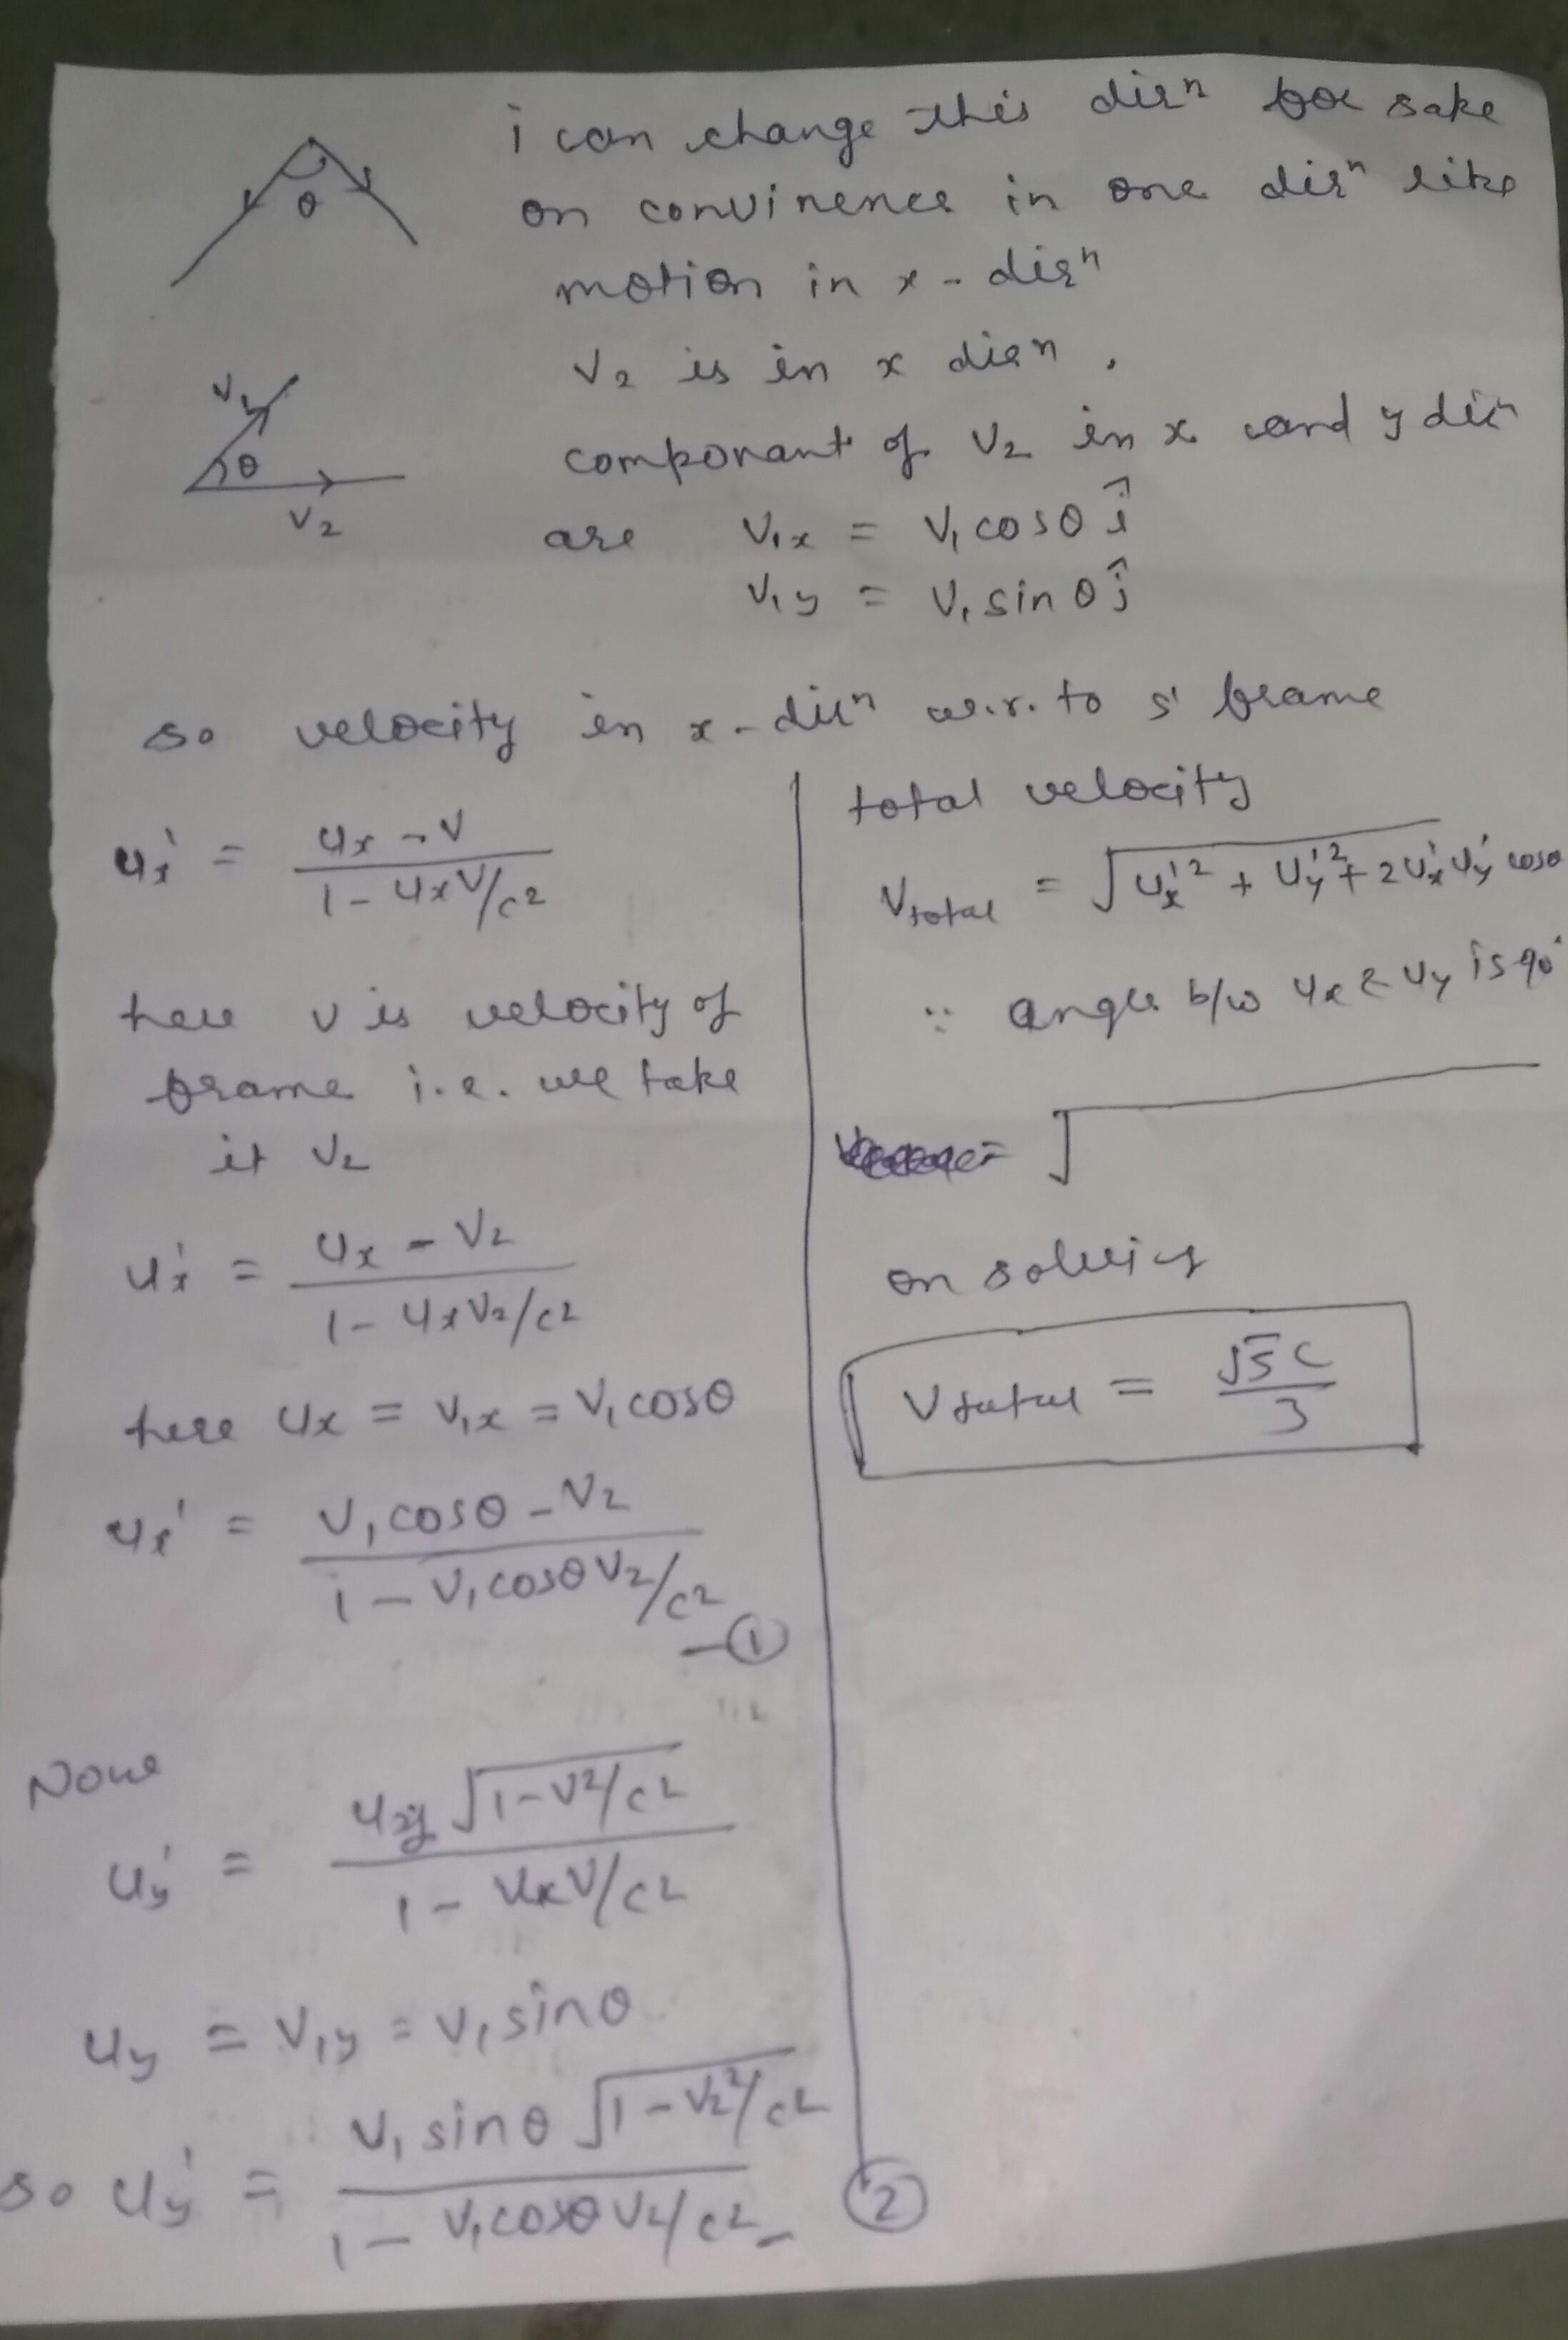 i can change this dirⁿ for sake
on convinence in one dirⁿ like
motion in x - dirⁿ
θ
V₂ is in x dirⁿ .
componant of V₂ in x and y dirⁿ
are V₁x = V₁ cosθ î
V₁y = V₁ sinθ ĵ
V₁
θ
V₂
so velocity in x - dirⁿ w.r. to s' frame
ux' = (ux - V) / (1 - uxV/c²)
here v is velocity of
frame i.e. we take
it V₂
ux' = (ux - V₂) / (1 - uxV₂/c²)
here ux = V₁x = V₁ cosθ
ux' = (V₁ cosθ - V₂) / (1 - V₁ cosθ V₂/c²)
— ①
Now
uy' = (uy √(1 - V²/c²)) / (1 - uxV/c²)
uy = V₁y = V₁ sinθ
so uy' = (V₁ sinθ √(1 - V₂²/c²)) / (1 - V₁cosθ V₂/c²) - ②
total velocity
Vtotal = √(ux'² + uy'² + 2ux'uy' cosθ)
∵ angle b/w ux & uy is 90°
= √
on solving
Vtotal = √5 c / 3